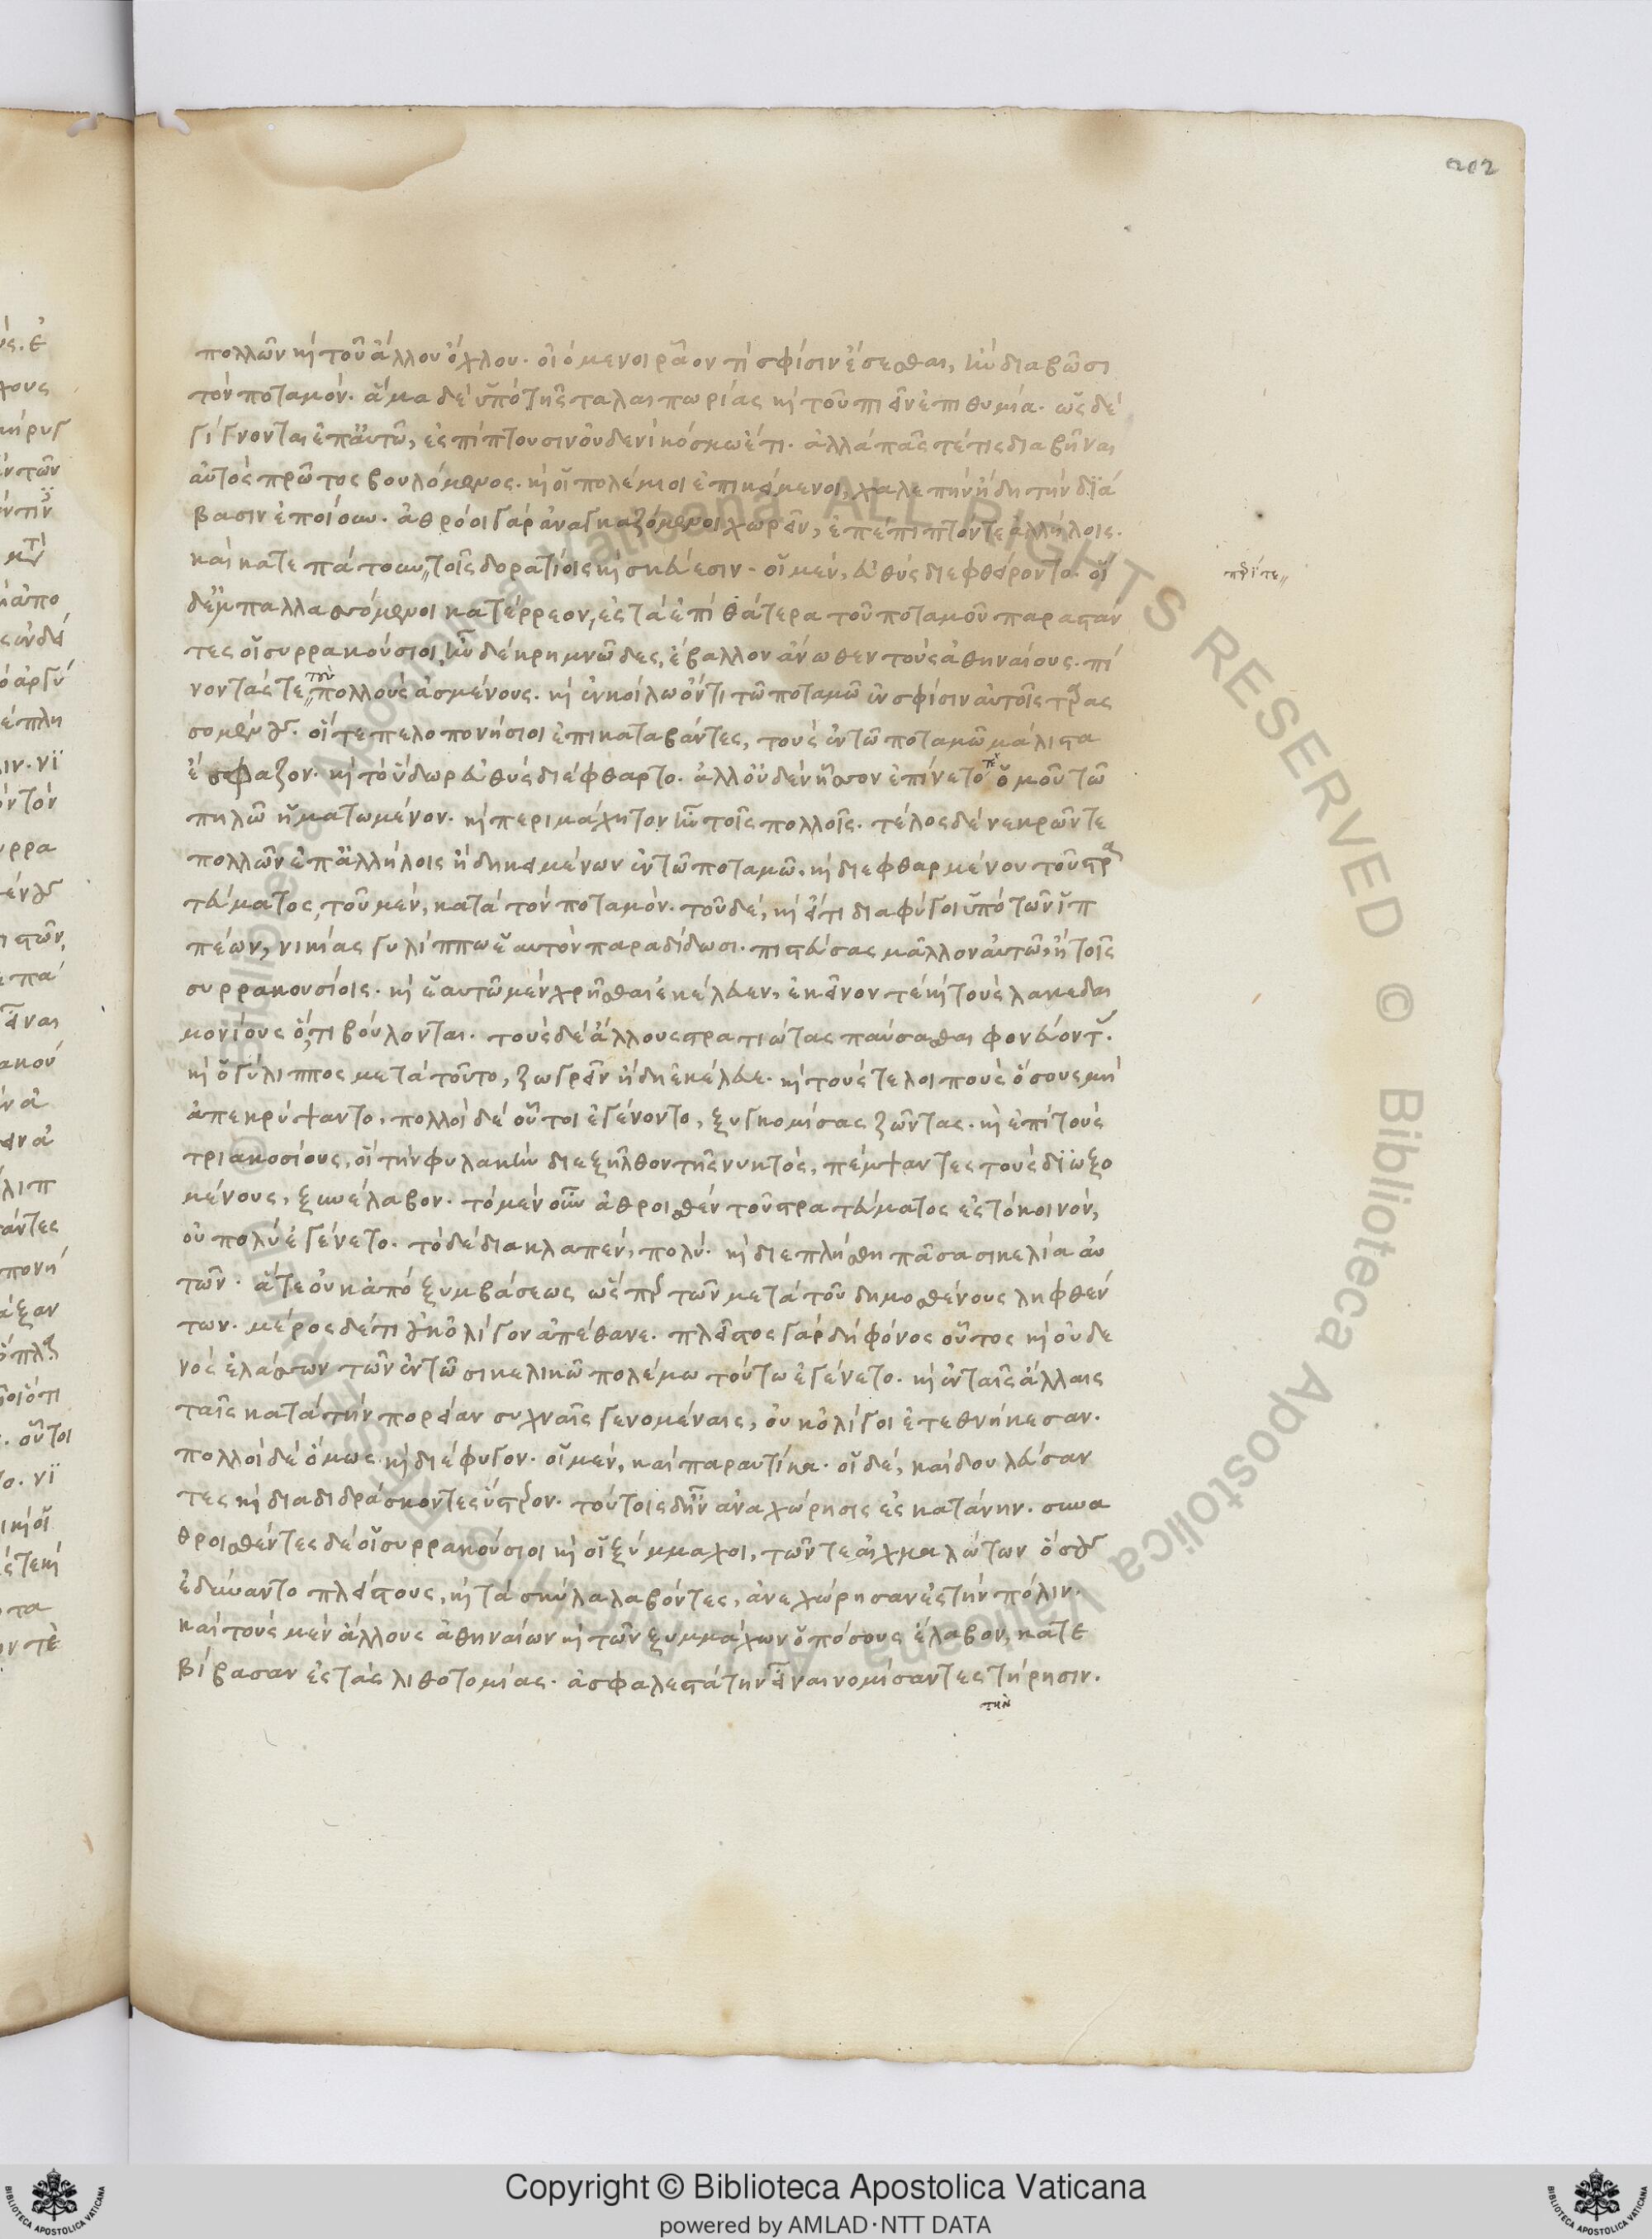 202
πολλῶν καὶ τοῦ ἄλλου ὄχλου· οἰόμενοι ρᾶον τὶ σφίσιν ἔσεσθαι, ἢν διαβῶσι
τὸν ποταμόν· ἅμα δὲ ὑπὸ τῆς ταλαιπωρίας καὶ τοῦ πιεῖν ἐπιθυμία· ὡς δὲ
γίγνονται ἐπαὐτῶ, ἐσπίπτουσιν οὐδενὶ κόσμω ἔτι· ἀλλὰ πᾶς τέ τις διαβῆναι
αὐτὸς πρῶτος βουλόμενος· καὶ οἱ πολέμιοι ἐπικείμενοι, χαλεπὴν ἤδη τὴν διά
βασιν ἐποίουν· ἀθρόοι γὰρ ἀναγκαζόμενοι χωρεῖν, ἐπέπιπτόν τε ἀλλήλοις·
καὶ κατεπάτουν τοῖς δορατίοις καὶ σκεύεσιν· οἱ μὲν, εὐθὺς διεφθείροντο· οἱ
περί τε
δ' ἐμπαλλασσόμενοι κατέρρεον, ἐς τὰ ἐπὶ θάτερα τοῦ ποταμοῦ παραστάν
τες οἱ συρρακούσιοι, ἦν δὲ κρημνῶδες, ἔβαλλον ἄνωθεν τοὺς ἀθηναίους· πί
νοντάς τε τοὺς πολλοὺς ἀσμένους· καὶ ἐν κοίλω ὄντι τῶ ποταμῶ ἐν σφίσιν αὐτοῖς ταρας
σομένους· οἵ τε πελοπονήσιοι ἐπικαταβάντες, τοὺς ἐν τῶ ποταμῶ μάλιστα
ἔσφαζον· καὶ τὸ ὕδωρ εὐθὺς διέφθαρτο· ἀλλ' οὐδὲν ἧσσον ἐπίνετό τε ὁμοῦ τῶ
πηλῶ ἡματωμένον· καὶ περιμάχητον ἦν τοῖς πολλοῖς· τέλος δὲ νεκρῶν τε
πολλῶν ἐπ' ἀλλήλοις ἤδη κειμένων ἐν τῶ ποταμῶ· καὶ διεφθαρμένου τοῦ στρα
τεύματος, τοῦ μὲν, κατὰ τὸν ποταμόν· τοῦ δὲ, καὶ εἴ τι διαφύγοι ὑπὸ τῶν ἱπ
πέων, νικίας γυλίππω ἑαυτὸν παραδίδωσι· πιστεύσας μᾶλλον αὐτῶ, ἢ τοῖς
συρρακουσίοις· καὶ ἑαυτῶ μὲν χρῆσθαι ἐκέλευεν, ἐκεῖνόν τε καὶ τοὺς λακεδαι
μονίους ὅ,τι βούλονται· τοὺς δὲ ἄλλους στρατιώτας παύσασθαι φονεύοντας·
καὶ ὁ γύλιππος μετὰ τοῦτο, ζωγρεῖν ἤδη ἐκέλευε· καὶ τούς τε λοιποὺς ὅσους μὴ
ἀπεκρύψαντο· πολλοὶ δὲ οὗτοι ἐγένοντο, ξυγκομίσας ζῶντας· καὶ ἐπὶ τοὺς
τριακοσίους, οἳ τὴν φυλακὴν διεξῆλθον τῆς νυκτός, πέμψαντες τοὺς διωξο
μένους, ξυνέλαβον· τὸ μὲν οὖν ἀθροισθὲν τοῦ στρατεύματος ἐς τὸ κοινόν,
οὐ πολὺ ἐγένετο· τὸ δὲ διακλαπὲν, πολύ· καὶ διεπλήσθη πᾶσα σικελία αὐ
τῶν· ἅτε οὐκ ἀπὸ ξυμβάσεως ὥσπερ τῶν μετὰ τοῦ δημοσθένους ληφθέν
των· μέρος δέ τι καὶ οὐκ ὀλίγον ἀπέθανε· πλεῖστος γὰρ δὴ φόνος οὗτος καὶ οὐδε
νὸς ἐλάσσων τῶν ἐν τῶ σικελικῶ πολέμω τούτω ἐγένετο· καὶ ἐν ταῖς ἄλλαις
ταῖς κατὰ τὴν πορείαν συχναῖς γενομέναις, οὐκ ὀλίγοι ἐτεθνήκεσαν·
πολλοὶ δὲ ὅμως καὶ διέφυγον· οἱ μὲν, καὶ παραυτίκα· οἱ δὲ, καὶ δουλεύσαν
τες καὶ διαδιδράσκοντες ὕστερον· τούτοις δ' ἦν ἀναχώρησις ἐς κατάνην· συνα
θροισθέντες δὲ οἱ συρρακούσιοι καὶ οἱ ξύμμαχοι, τῶν τε αἰχμαλώτων ὅσους
ἐδύναντο πλείστους, καὶ τὰ σκύλα λαβόντες, ἀνεχώρησαν ἐς τὴν πόλιν·
καὶ τοὺς μὲν ἄλλους ἀθηναίων καὶ τῶν ξυμμάχων ὁπόσους ἔλαβον, κατε
βίβασαν ἐς τὰς λιθοτομίας· ἀσφαλεστάτην εἶναι νομίσαντες τήρησιν·
τὴν
Copyright © Biblioteca Apostolica Vaticana
powered by AMLAD·NTT DATA